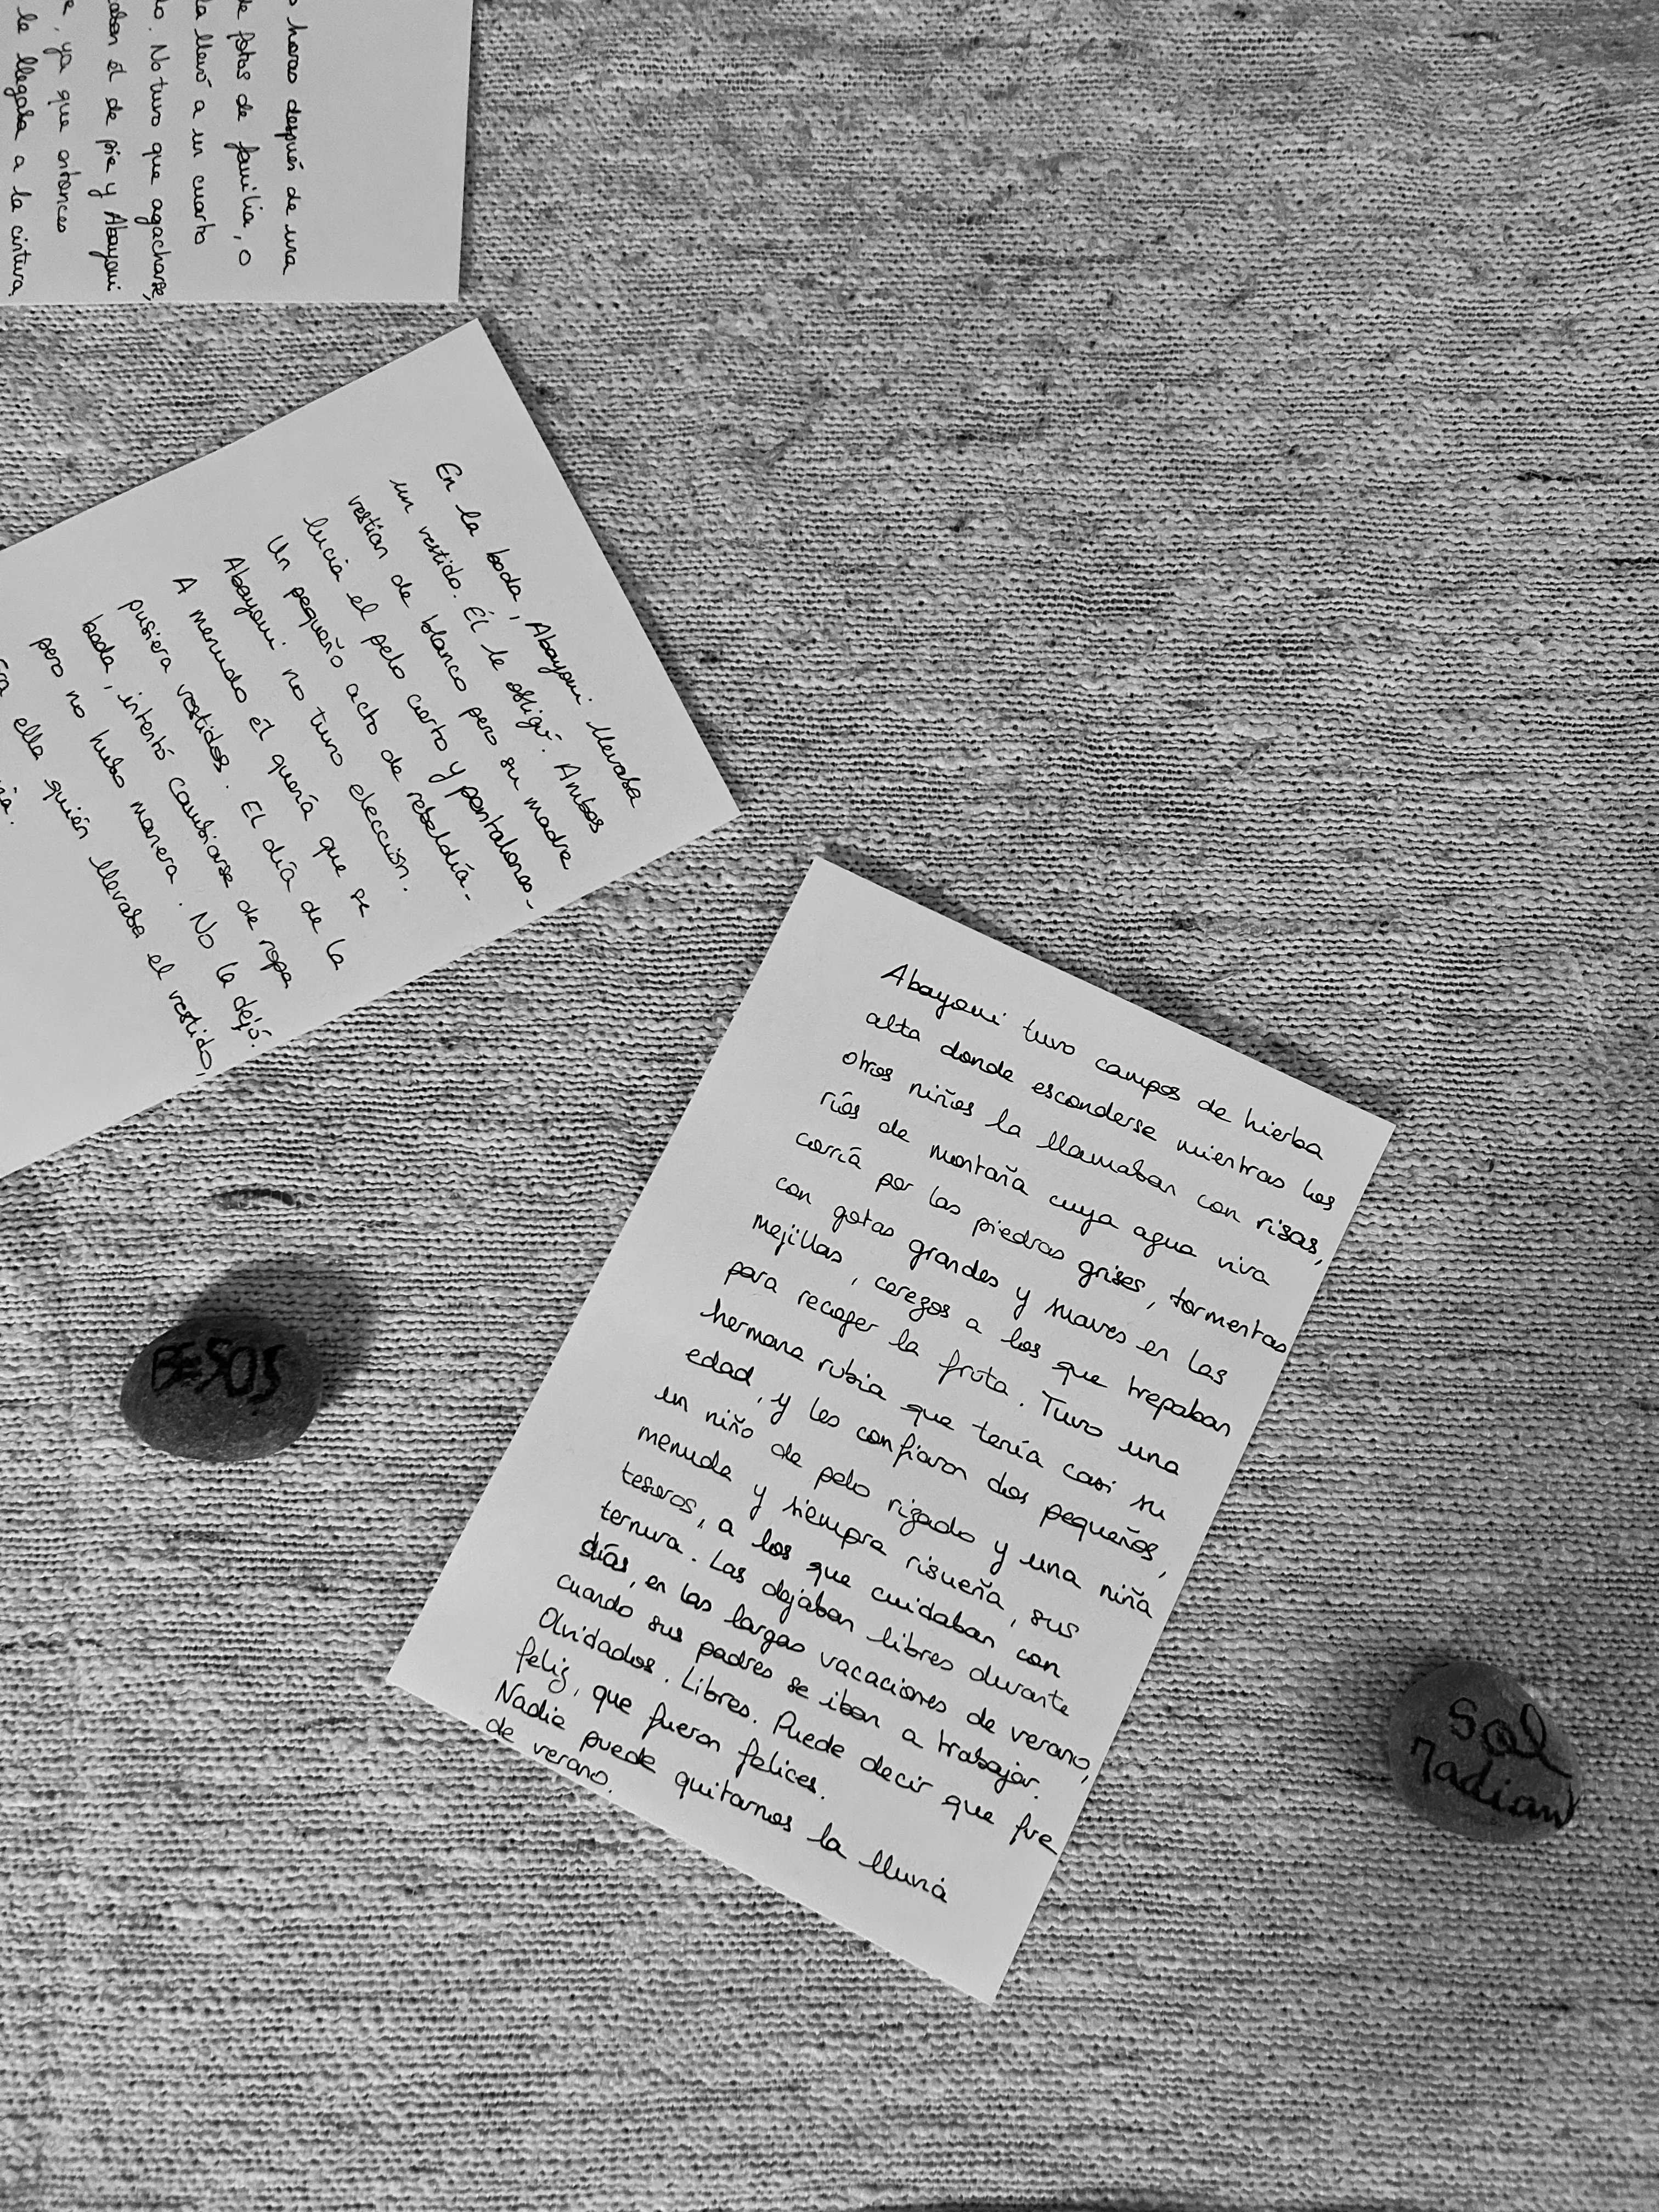 o horas después de una
de fotos de familia, o
la llevó a un cuarto
No tuvo que agacharse,
el de pie y Abayomi
, ya que entonces
le llegaba a la cintura.
En la boda, Abayomi llevaba
un vestido. Él le obligó. Ambos
vestían de blanco pero su madre
lucía el pelo corto y pantalones.
Un pequeño acto de rebeldía.
Abayomi no tuvo elección.
A menudo él quería que se
pusiera vestidos. El día de la
boda, intentó cambiarse de ropa
pero no hubo manera. No la dejó.
ella quién llevaba el vestido,
Abayomi tuvo campos de hierba
alta donde esconderse mientras los
otros niños la llamaban con risas,
ríos de montaña cuya agua viva
corría por las piedras grises, tormentas
con gotas grandes y suaves en las
mejillas, cerezos a los que trepaban
para recoger la fruta. Tuvo una
hermana rubia que tenía casi su
edad, y les confiaron dos pequeños,
un niño de pelo rizado y una niña
menuda y siempre risueña, sus
tesoros, a los que cuidaban con
ternura. Las dejaban libres durante
días, en las largas vacaciones de verano,
cuando sus padres se iban a trabajar.
Olvidados. Libres. Puede decir que fue
feliz, que fueron felices.
Nadie puede quitarnos la lluvia
de verano.
BESOS
Sol